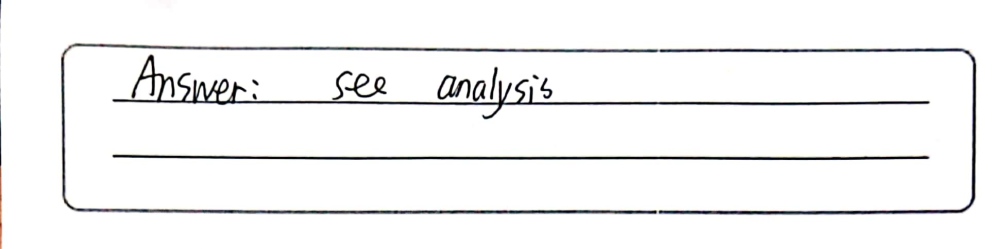 Answer: see analysis